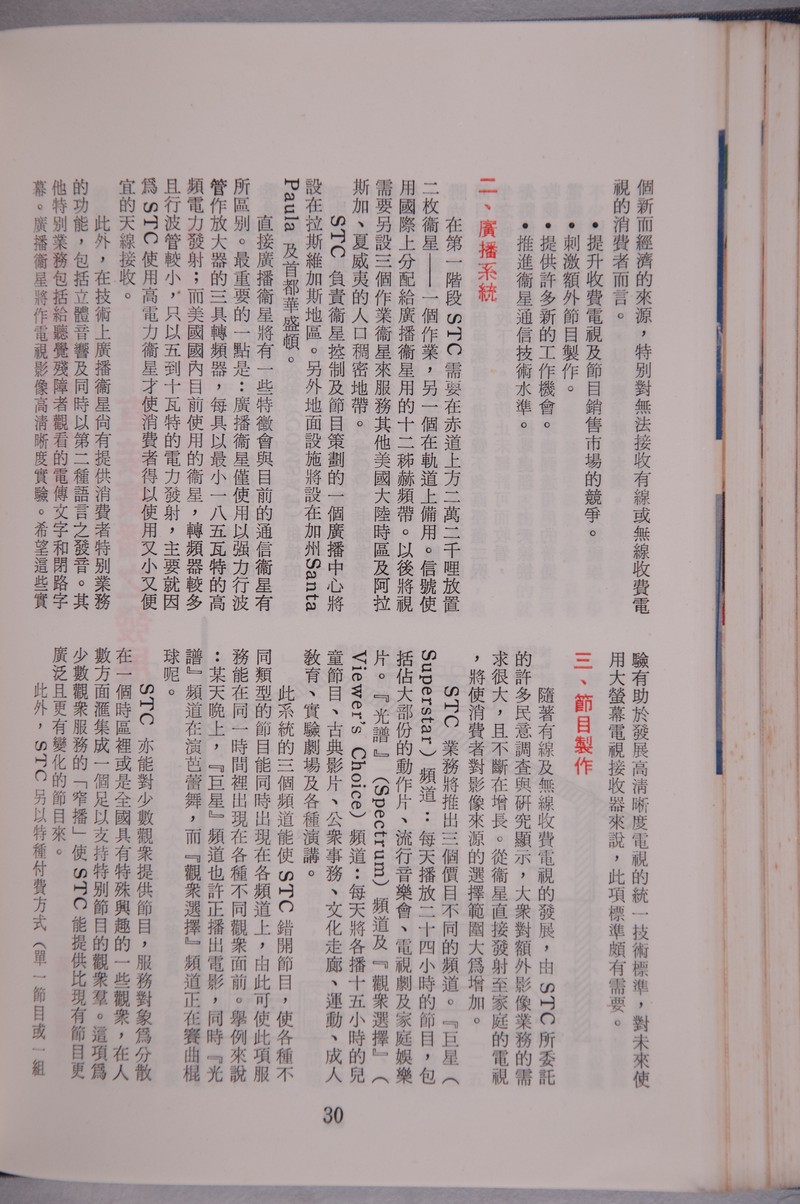 個新而經濟的來源，特別對無法接收有線或無線收費電
視的消費者而言。
•提升收費電視及節目銷售市場的競爭。
•刺激額外節目製作。
•提供許多新的工作機會。
•推進衞星通信技術水準。
二、廣播系統
在第一階段 STC 需要在赤道上方二萬二千哩放置
二枚衞星——一個作業，另一個在軌道上備用。信號使
用國際上分配給廣播衞星用的十二秭赫頻帶。以後將視
需要另設三個作業衞星來服務其他美國大陸時區及阿拉
斯加、夏威夷的人口稠密地帶。
STC 負責衞星控制及節目策劃的一個廣播中心將
設在拉斯維加斯地區。另外地面設施將設在加州Santa
Paula 及首都華盛頓。
直接廣播衞星將有一些特徵會與目前的通信衞星有
所區別。最重要的一點是：廣播衞星僅使用以强力行波
管作放大器的三具轉頻器，每具以最小一八五瓦特的高
頻電力發射；而美國國內目前使用的衞星，轉頻器較多
且行波管較小，只以五到十瓦特的電力發射，主要就因
爲 STC 使用高電力衞星才使消費者得以使用又小又便
宜的天線接收。
此外，在技術上廣播衞星尙有提供消費者特別業務
的功能，包括立體音響及同時以第二種語言之發音。其
他特別業務包括給聽覺殘障者觀看的電傳文字和閉路字
幕。廣播衞星將作電視影像高清晰度實驗。希望這些實
驗有助於發展高清晰度電視的統一技術標準，對未來使
用大螢幕電視接收器來說，此項標準頗有需要。
三、節目製作
隨著有線及無線收費電視的發展，由 STC 所委託
的許多民意調查與研究顯示，大衆對額外影像業務的需
求很大，且不斷在增長。從衞星直接發射至家庭的電視
，將使消費者對影像來源的選擇範圍大爲增加。
STC 業務將推出三個價目不同的頻道。『巨星』（
Superstar）頻道：每天播放二十四小時的節目，包
括佔大部份的動作片、流行音樂會、電視劇及家庭娛樂
片。『光譜』（Spectrum）頻道及『觀衆選擇』（
Viewer's Choice）頻道：每天將各播十五小時的兒
童節目、古典影片、公衆事務、文化走廊、運動、成人
敎育、實驗劇場及各種演講。
此系統的三個頻道能使 STC 錯開節目，使各種不
同類型的節目能同時出現在各頻道上，由此可使此項服
務能在同一時間裡出現在各種不同觀衆面前。舉例來說
：某天晚上，『巨星』頻道也許正播出電影，同時『光
譜』頻道在演芭蕾舞，而『觀衆選擇』頻道正在賽曲棍
球呢。
STC 亦能對少數觀衆提供節目，服務對象爲分散
在一個時區裡或是全國具有特殊興趣的一些觀衆，在人
數方面滙集成一個足以支持特別節目的觀衆羣。這項爲
少數觀衆服務的「窄播」使 STC 能提供比現有節目更
廣泛且更有變化的節目來。
此外，STC 另以特種付費方式（單一節目或一組
30